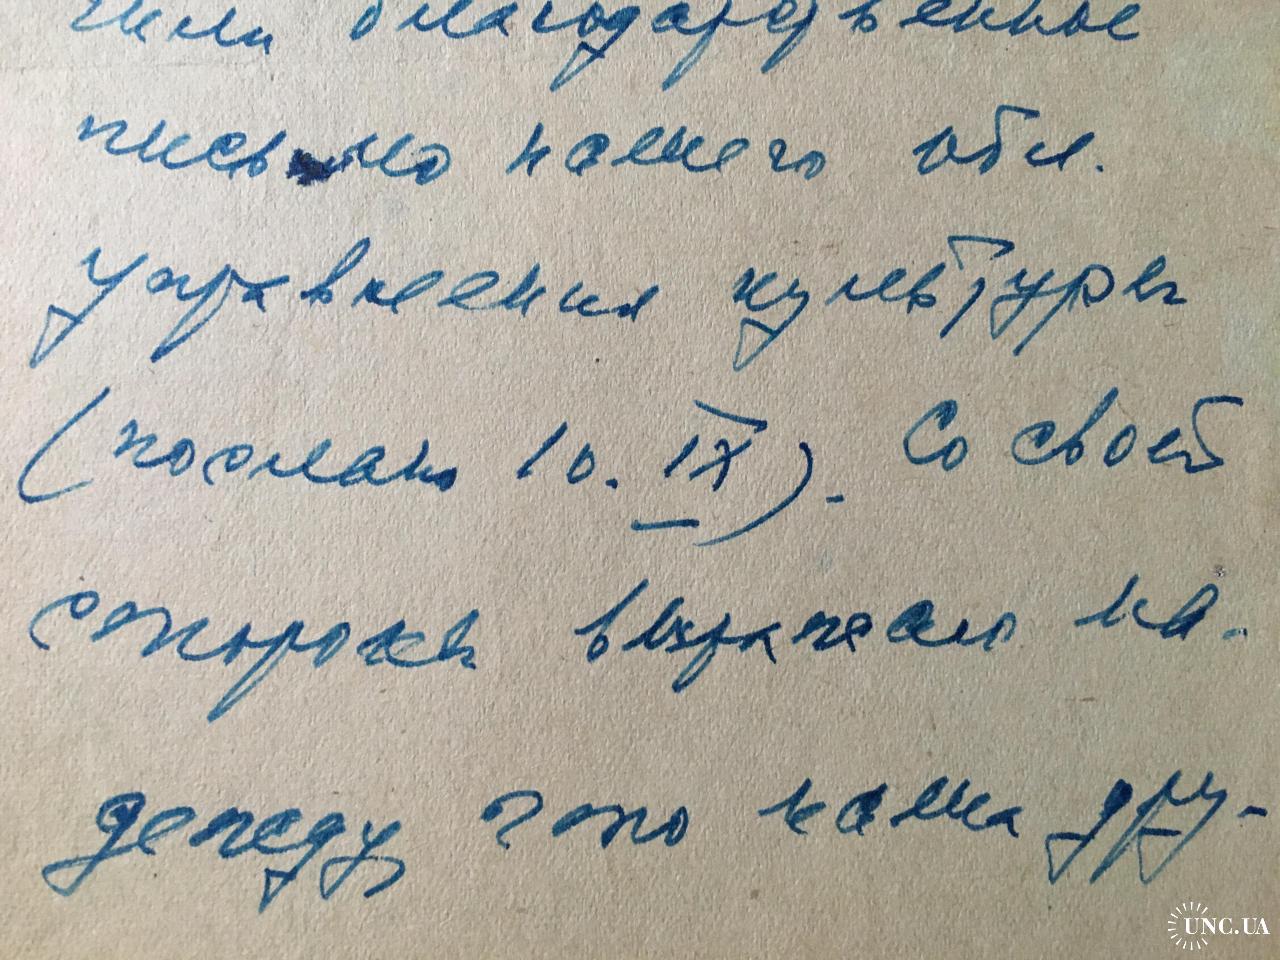 чили благодарственное
письмо нашего обл.
управления культуры
(послано 10. IX). Со своей
стороны выражаю на-
дежду, что наша дру-
UNC.UA